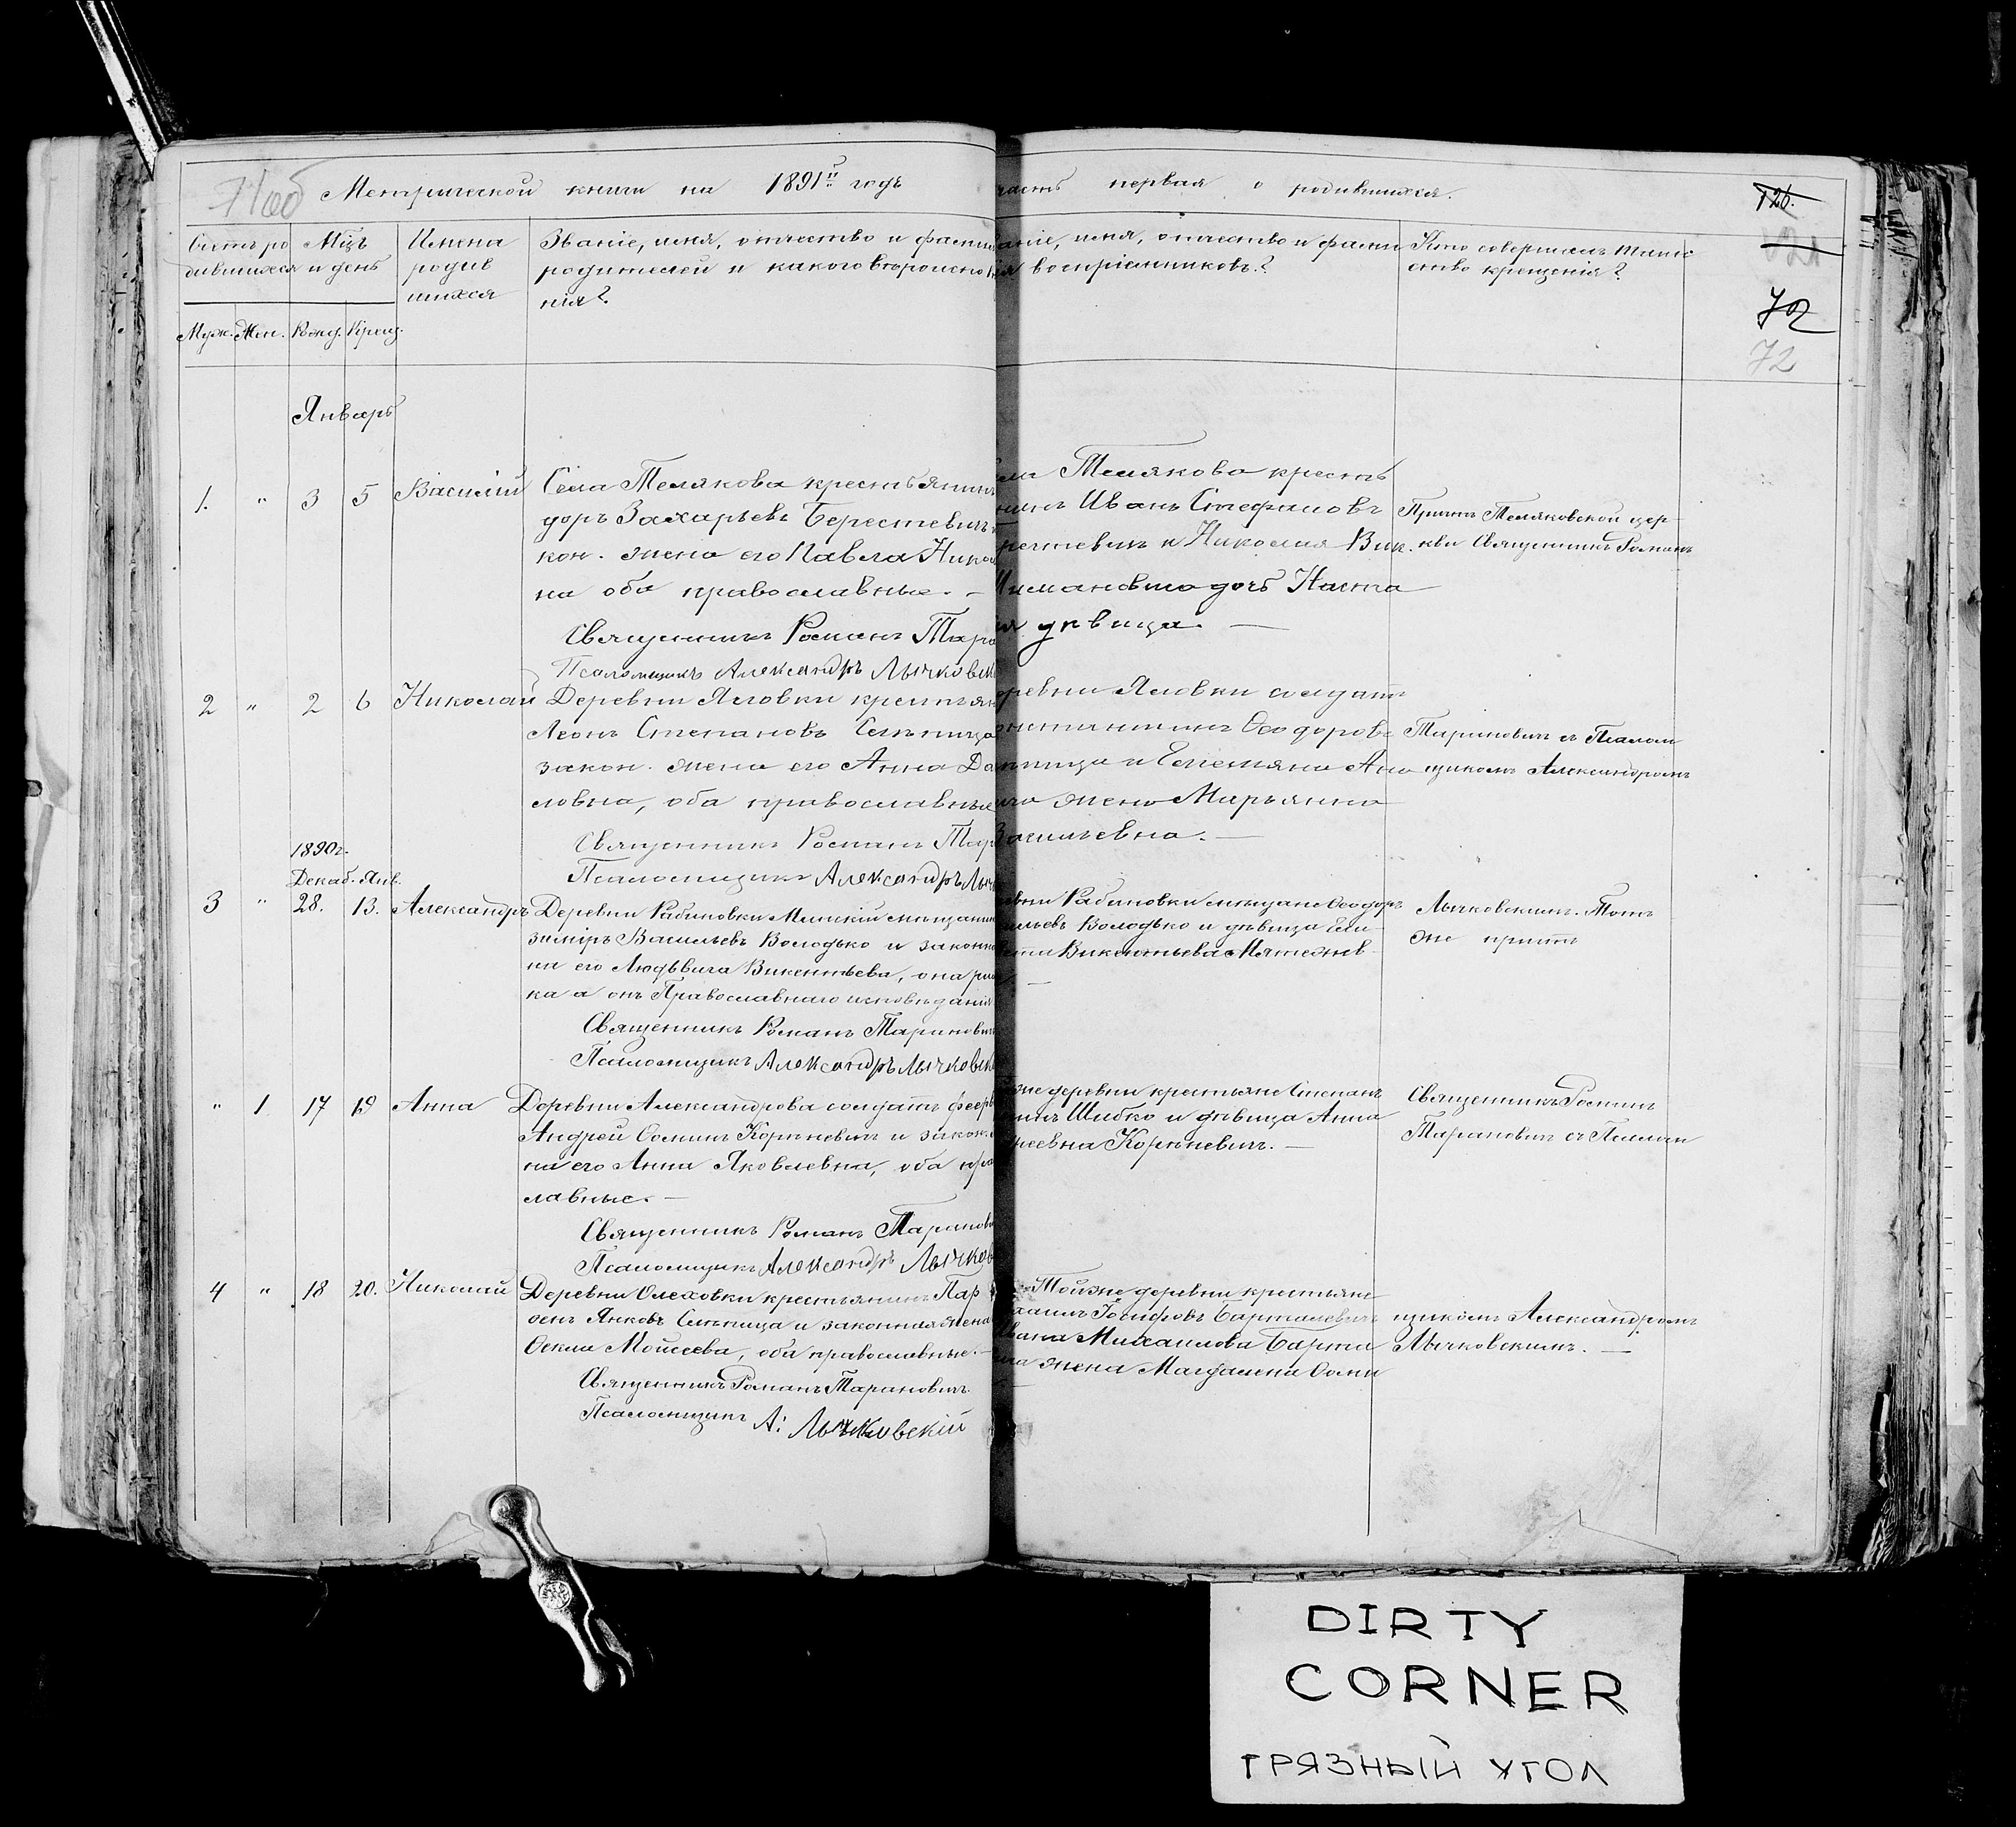 Метрической книги на 1891й годъ
часть первая о родившихся.
126.
121
72
72
Счетъ ро
дившихся
Мцъ
и день
Имена
родив
шихся
Званіе, имя, отчество и фамил
родителей и какого вѣроиспо
нія?
аніе, имя, отчество и фами
воспріемниковъ?
Кто совершалъ таинс
ство крещенія?
Муж. Жен. Рожд. Крещ.
Январь
1. " 3 5 Василій
Села Телякова крестьянинъ
доръ Захарьевъ Берестевичъ
кон. жена его Павла Никол
на оба православные. —
Священникъ Романъ Тара
Псаломщикъ Александръ Лычковск
ла Телякова кресть
нинъ Иванъ Стефановъ
рестевичъ и Николая Вик.
дочь Наста
я дѣвица. —
Причтъ Теляковской цер-
кви Священникъ Романъ
2 " 2 6 Николай
Деревни Яловки крестьян
Леонъ Степановъ Сѣпица
закон. жена его Анна Да
ловна, оба православные
Священникъ Романъ Тар
Псаломщикъ Александръ Лыч
ревни Яловки солдатъ
нстантинъ Ѳеодоровъ
пица и жена Марьянна
Васильевна. —
Тарановичъ съ Псалом
щикомъ Александромъ
1890г.
Декаб. Янв.
3 " 28. 13. Александръ
Деревни Рабиновки Минскій мѣщанин
зиміръ Васильевъ Володько и законна
на его Людьвига Викентьева, она рим
ка а онъ Православнаго исповѣданія
Священникъ Романъ Тарановичъ
Псаломщикъ Александръ Лычковск
евни Рабиновки мѣщане Ѳеодоръ
сильевъ Володько и дѣвица Ели-
вета Викентьева Мятежев
—
Лычковскимъ. Тотъ
же причтъ
" 1 17 19 Анна
Деревни Александрова солдатъ феерв
Андрей Осиинъ Корѣневичъ и закон.
на его Анна Яковлевна, оба пра
славные. —
Священникъ Романъ Таранов
Псаломщикъ Александръ Лычков
же деревни крестьяне Степанъ
Шибко и дѣвица Анна
реевна Корѣневичъ. —
Священникъ Романъ
Тарановичъ съ Псалом
4 " 18 20. Николай
Деревни Олеховки крестьянинъ Пар
ѳенъ Янковъ Сѣпица и законная жена
Ѳекла Моисеева, оба православные. —
Священникъ Романъ Тарановичъ
Псаломщикъ А. Лычковскій
Тойже деревни крестьяне
хаилъ Іосифовъ Барташевичъ
Ивана Михаилова Барта
жена Магдалена Осип
щикомъ Александромъ
Лычковскимъ. —
DIRTY
CORNER
ГРЯЗНЫЙ УГОЛ